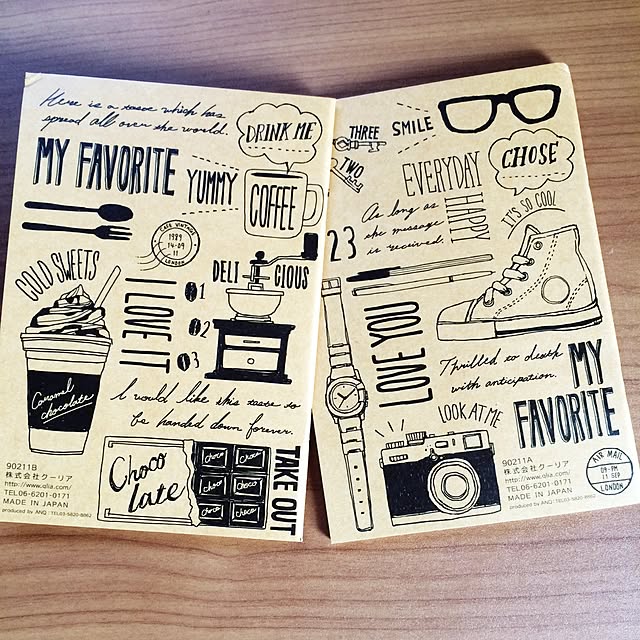 Here is a taste which has
spread all over the world.
DRINK ME
MY FAVORITE
YUMMY
COFFEE
CAFE VINTAGE
1989
14-09
11
LONDON
COLD SWEETS
DELI CIOUS
I LOVE IT
1
2
3
Caramel
chocolate
I would like this taste to
be handed down forever.
Choco
late
choco choco
choco choco
choco choco
TAKE OUT
90211B
株式会社クーリア
http://www.qlia.com/
TEL06-6201-0171
MADE IN JAPAN
produced by ANQ : TEL03-5820-8862
THREE
SMILE
TWO
EVERYDAY
HAPPY
CHOSE
IT'S SO COOL
As long as
the message
is received.
23
LOVE YOU
Thrilled to death
with anticipation.
MY
FAVORITE
LOOK AT ME
90211A
株式会社クーリア
http://www.qlia.com/
TEL06-6201-0171
MADE IN JAPAN
produced by ANQ : TEL03-5820-8862
AIR MAIL
09-PM
11 SEP
LONDON